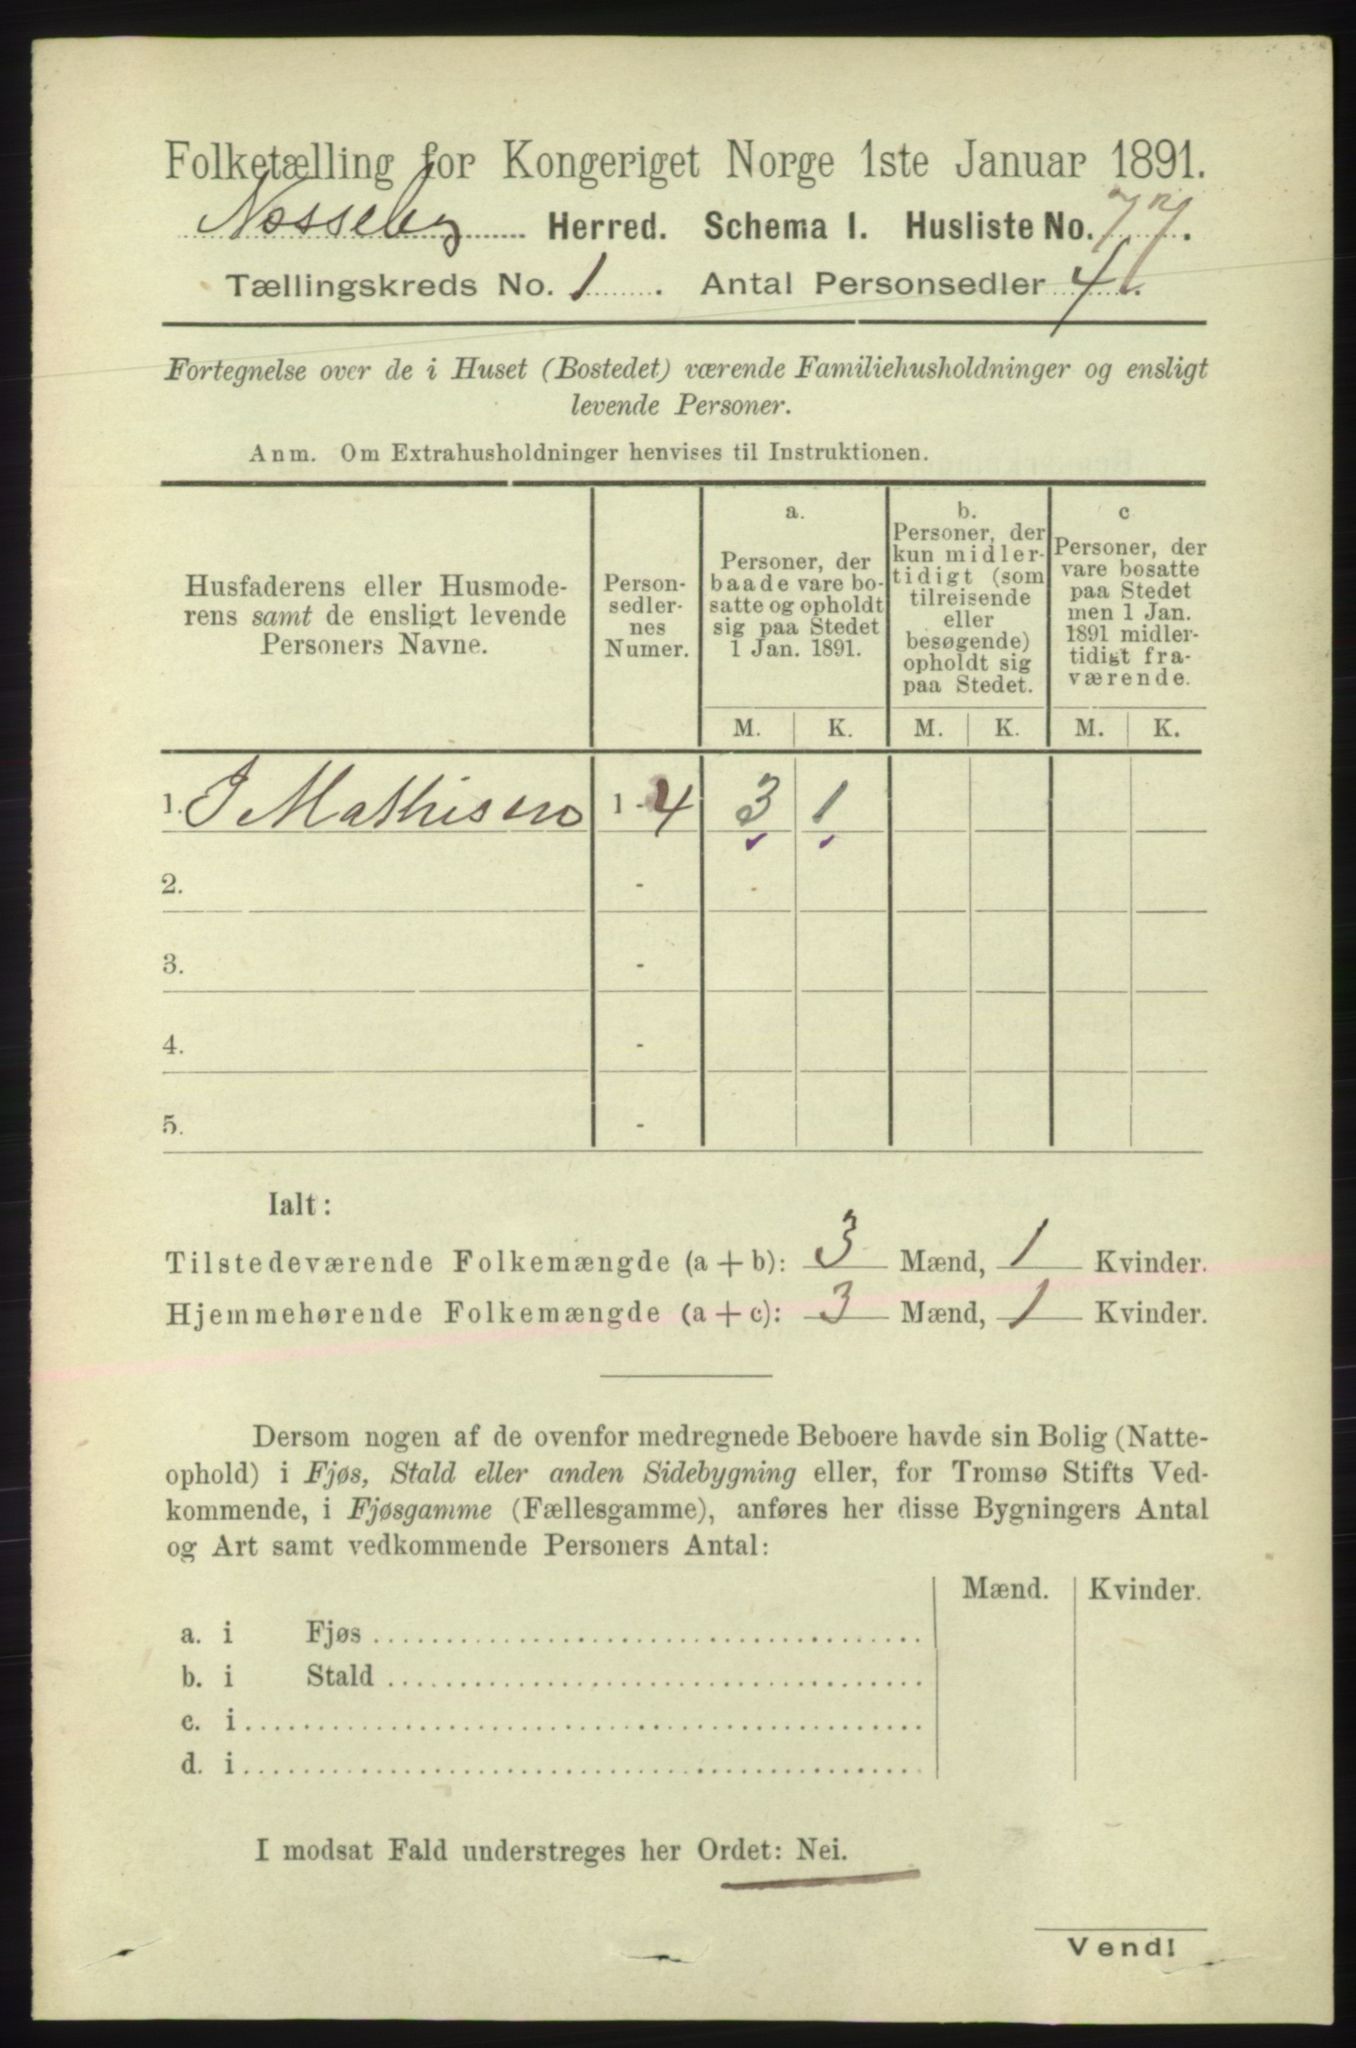 Folketælling for Kongeriget Norge 1ste Januar 1891.
Nesseby Herred. Schema I. Husliste No. 77.
Tællingskreds No. 1. Antal Personsedler 4.
Fortegnelse over de i Huset (Bostedet) værende Familiehusholdninger og ensligt
levende Personer.
Anm. Om Extrahusholdninger henvises til Instruktionen.
Husfaderens eller Husmode-
rens samt de ensligt levende
Personers Navne.
Person-
sedler-
nes
Numer.
a.
Personer, der
baade vare bo-
satte og opholdt
sig paa Stedet
1 Jan. 1891.
b.
Personer, der
kun midler-
tidigt (som
tilreisende
eller
besøgende)
opholdt sig
paa Stedet.
c
Personer, der
vare bosatte
paa Stedet
men 1 Jan.
1891 midler-
tidigt fra-
værende.
M. K. M. K. M. K.
1. J Mathisen 1 - 4 3 1
2. -
3. -
4. -
5. -
Ialt:
Tilstedeværende Folkemængde (a + b): 3 Mænd, 1 Kvinder.
Hjemmehørende Folkemængde (a + c): 3 Mænd, 1 Kvinder.
Dersom nogen af de ovenfor medregnede Beboere havde sin Bolig (Natte-
ophold) i Fjøs, Stald eller anden Sidebygning eller, for Tromsø Stifts Ved-
kommende, i Fjøsgamme (Fællesgamme), anføres her disse Bygningers Antal
og Art samt vedkommende Personers Antal:
Mænd. Kvinder.
a. i Fjøs
b. i Stald
c. i
d. i
I modsat Fald understreges her Ordet: Nei.
Vend!